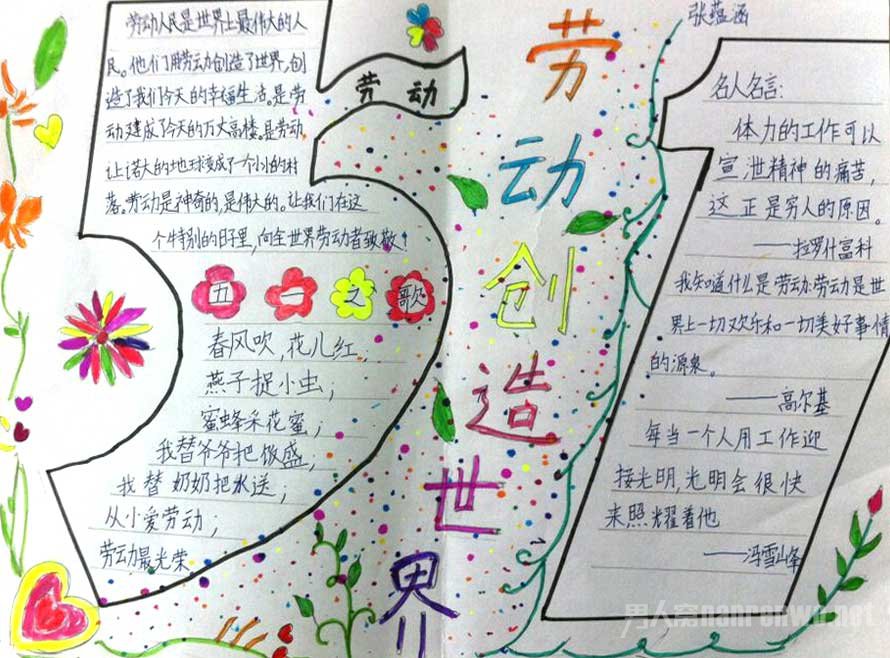 劳动人民是世界上最伟大的人
民。他们用劳动创造了世界,创
造了我们今天的幸福生活。是劳
动建成了今天的万丈高楼。是劳动
让诺大的地球变成了一个小小的村
落。劳动是神奇的,是伟大的。让我们在这
个特别的日子里,向全世界劳动者致敬!
劳动
五一之歌
春风吹,花儿红;
燕子捉小虫,
蜜蜂采花蜜;
我替爷爷把饭盛;
我替奶奶把水送;
从小爱劳动;
劳动最光荣
劳
动
创
造
世
界
张蕴涵
名人名言:
体力的工作可以
宣泄精神的痛苦,
这正是穷人的原因。
——拉罗什富科
我知道什么是劳动:劳动是世
界上一切欢乐和一切美好事情
的源泉。
——高尔基
每当一个人用工作迎
接光明,光明会很快
来照耀着他
——冯雪峰
男人窝nanrenwo.net